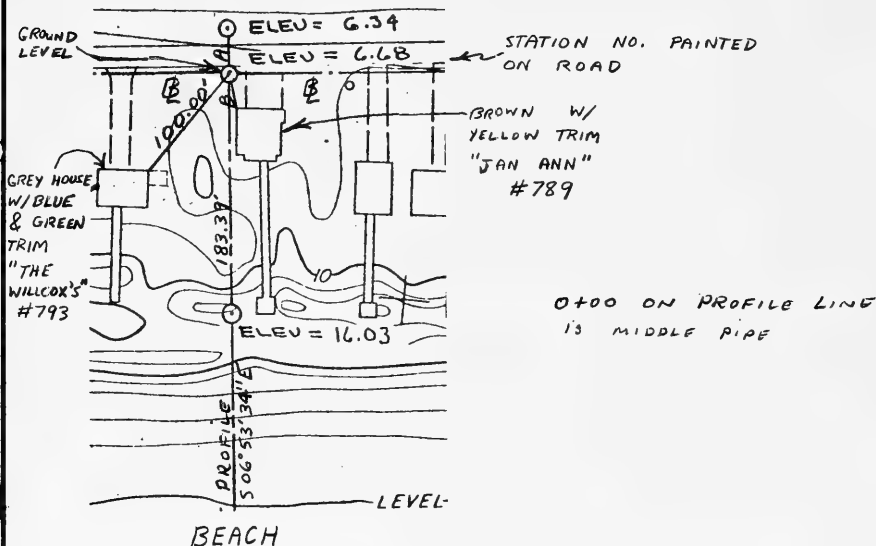 ELEV = 6.34
GROUND
LEVEL
A
ELEV = 6.68
STATION NO. PAINTED
ON ROAD
B
100.00'
BROWN W/
YELLOW TRIM
"JAN ANN"
#789
GREY HOUSE
W/BLUE
& GREEN
TRIM
"THE
WILLCOX'S"
#793
183.39'
10
0+00 ON PROFILE LINE
IS MIDDLE PIPE
ELEV = 16.03
PROFILE
S 06° 53' 34" E
LEVEL
BEACH